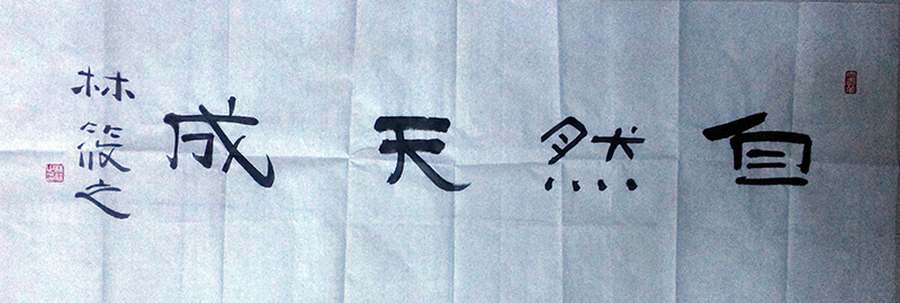 自然天成
林筱之